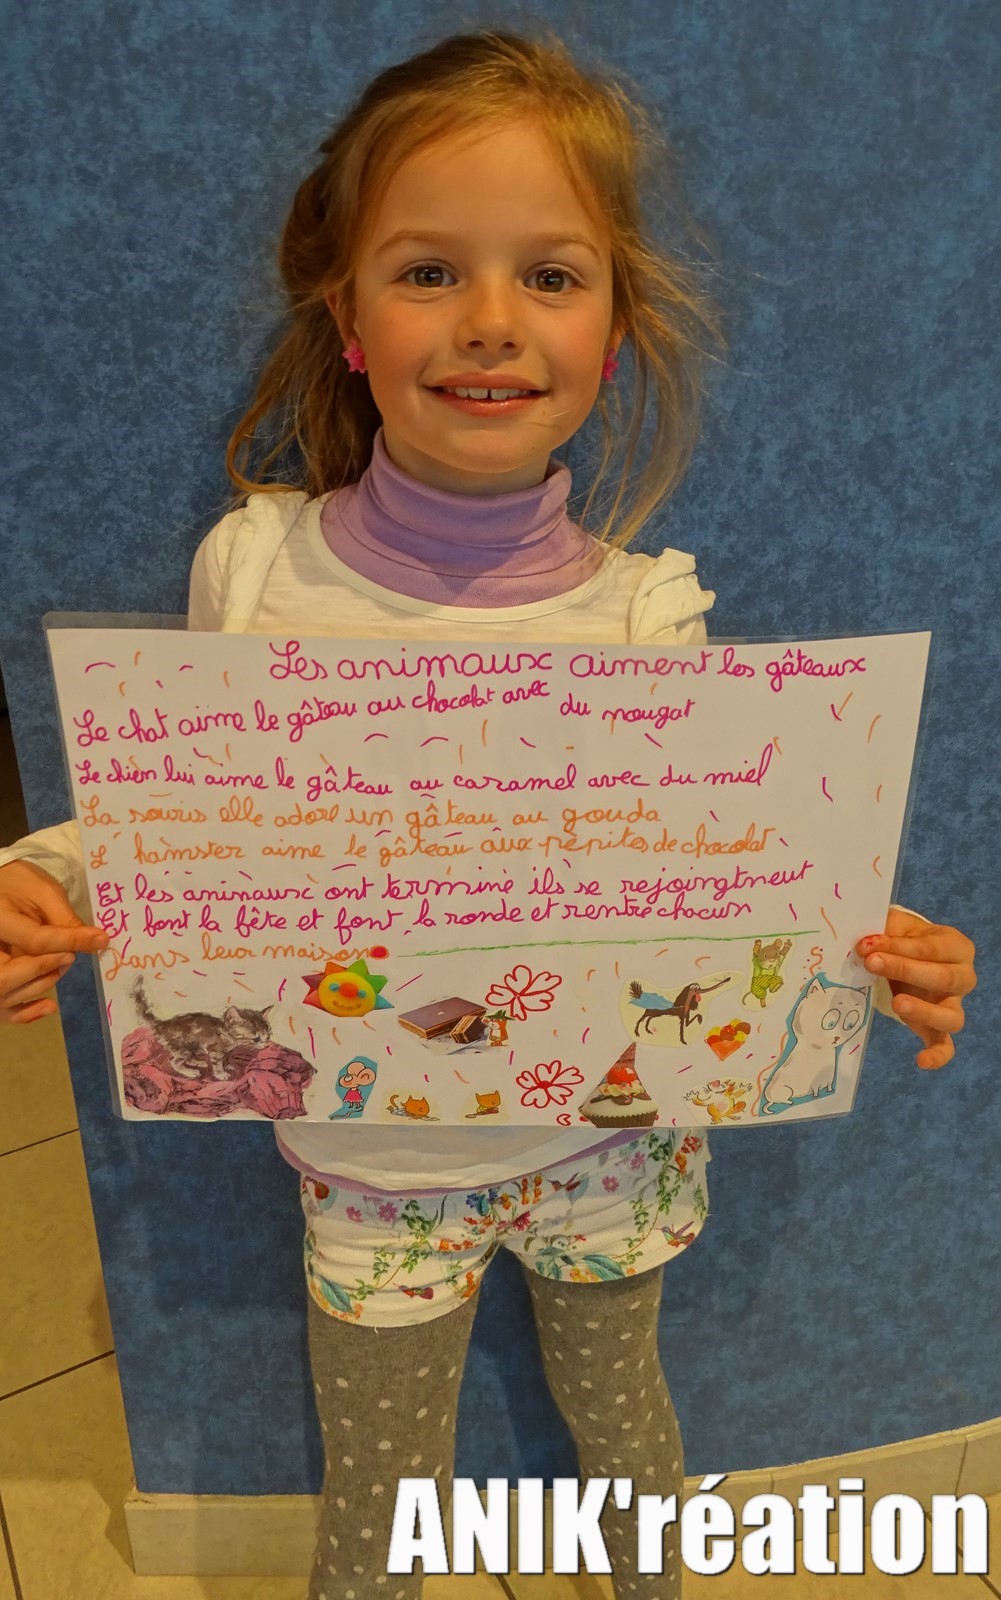 Les animaux aiment les gâteaux
Le chat aime le gâteau au chocolat avec du nougat
Le chien lui aime le gâteau au caramel avec du miel
La souris elle adore un gâteau au gouda
L' hamster aime le gâteau aux pépites de chocolat
Et les animaux ont terminé ils se rejoingtneut
Et font la fête et font la ronde et rentre chacun
Dans leur maison
ANIK'réation